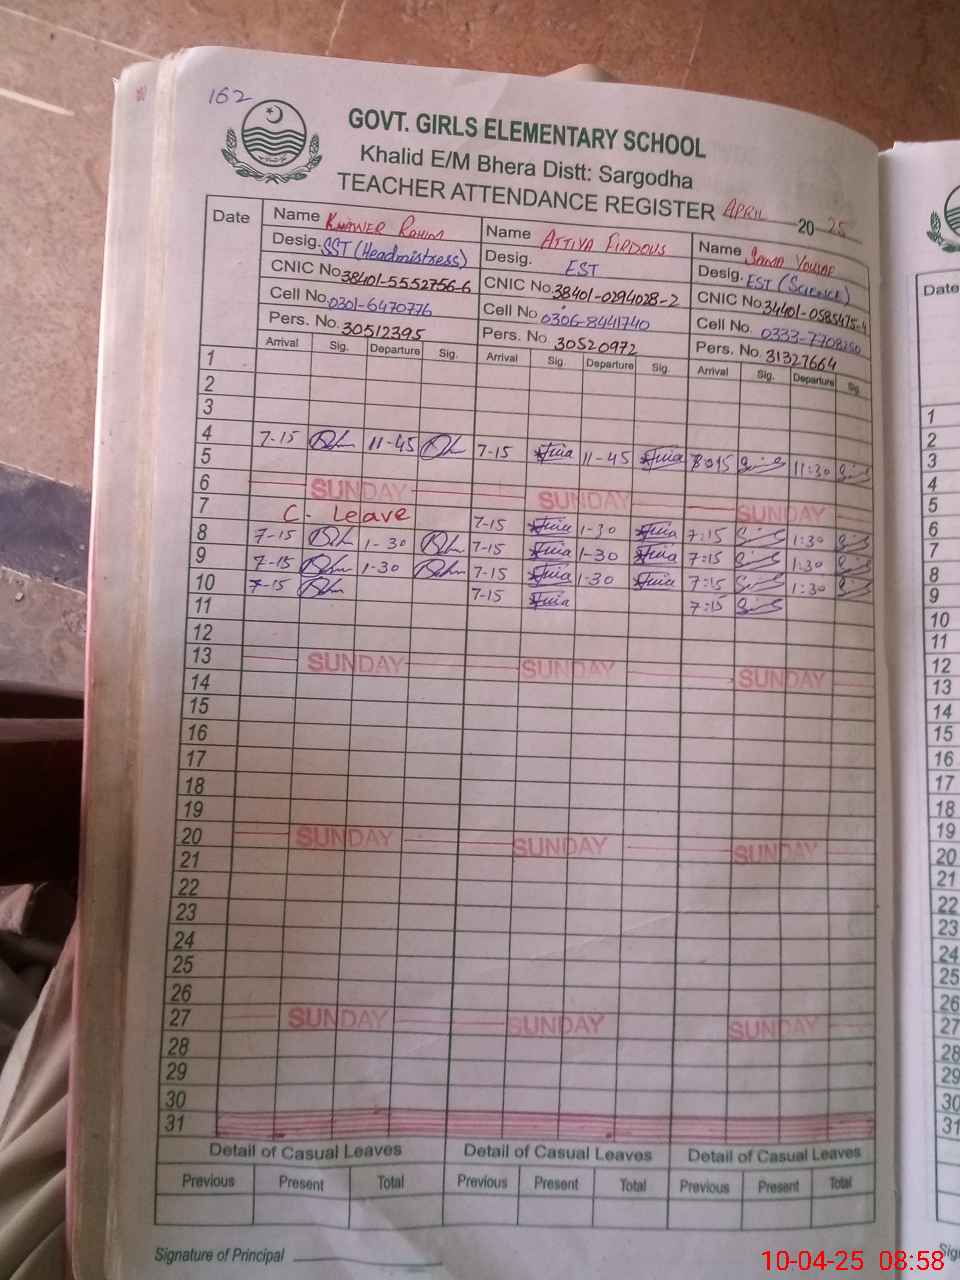 162
GOVT. GIRLS ELEMENTARY SCHOOL
Khalid E/M Bhera Distt: Sargodha
TEACHER ATTENDANCE REGISTER APRIL 2025
Date Name KHAWER RAHIM Name ATTIYA FIRDOUS Name SANA YOUSAF
Desig. SST (Headmistress) Desig. EST Desig. EST (Science)
CNIC No. 38401-5552756-6 CNIC No. 38401-0294028-2 CNIC No. 34401-0585475-4
Cell No. 0301-6470776 Cell No 0306-8441740 Cell No. 0333-7708250
Pers. No. 30512395 Pers. No. 30520972 Pers. No. 31327664
Arrival Sig. Departure Sig. Arrival Sig. Departure Sig. Arrival Sig. Departure Sig
1
2
3
4 7-15 11-45 7-15 11-45 8:15 11:30
5
6 SUNDAY SUNDAY SUNDAY
7 C- Leave 7-15 1-30 7:15 1:30
8 7-15 1-30 7-15 1-30 7:15 1:30
9 7-15 1-30 7-15 1-30 7:15 1:30
10 7-15 7-15 7:15
11
12
13 SUNDAY SUNDAY SUNDAY
14
15
16
17
18
19
20 SUNDAY SUNDAY SUNDAY
21
22
23
24
25
26
27 SUNDAY SUNDAY SUNDAY
28
29
30
31
Detail of Casual Leaves Detail of Casual Leaves Detail of Casual Leaves
Previous Present Total Previous Present Total Previous Present Total
Signature of Principal
Date
1
2
3
4
5
6
7
8
9
10
11
12
13
14
15
16
17
18
19
20
21
22
23
24
25
26
27
28
29
30
31
10-04-25 08:58